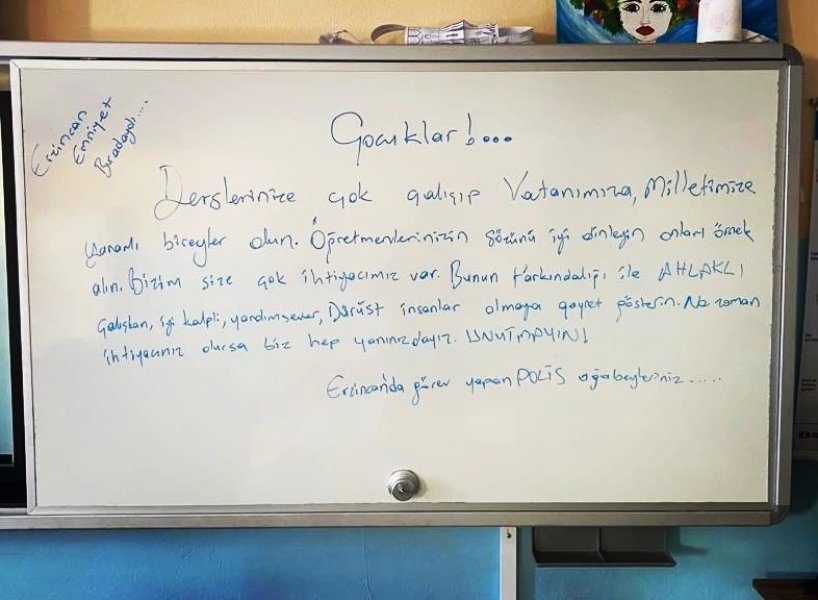 Erzincan
Emniyet
Buradaydı...
Çocuklar!...
Derslerinize çok çalışıp Vatanımıza, Milletimize
yararlı bireyler olun. Öğretmenlerinizin sözünü iyi dinleyin onları örnek
alın. Bizim size çok ihtiyacımız var. Bunun farkındalığı ile AHLAKLI
Çalışkan, iyi kalpli, yardımsever, Dürüst insanlar olmaya gayret gösterin. Ne zaman
ihtiyacınız olursa biz hep yanınızdayız. UNUTMAYIN!
Erzincan'da görev yapan POLİS ağabeyleriniz.....